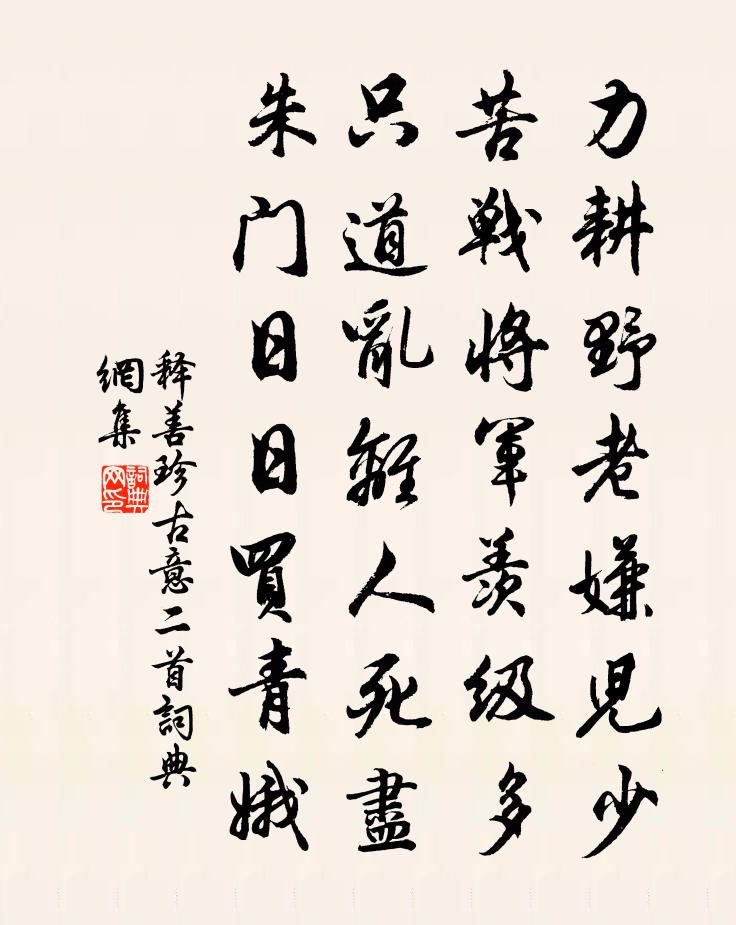 力耕野老嫌児少
苦戦将軍羨级多
只道亂離人死盡
朱门日日買青娥
释善珍古意二首詞典
網集
詞典网印